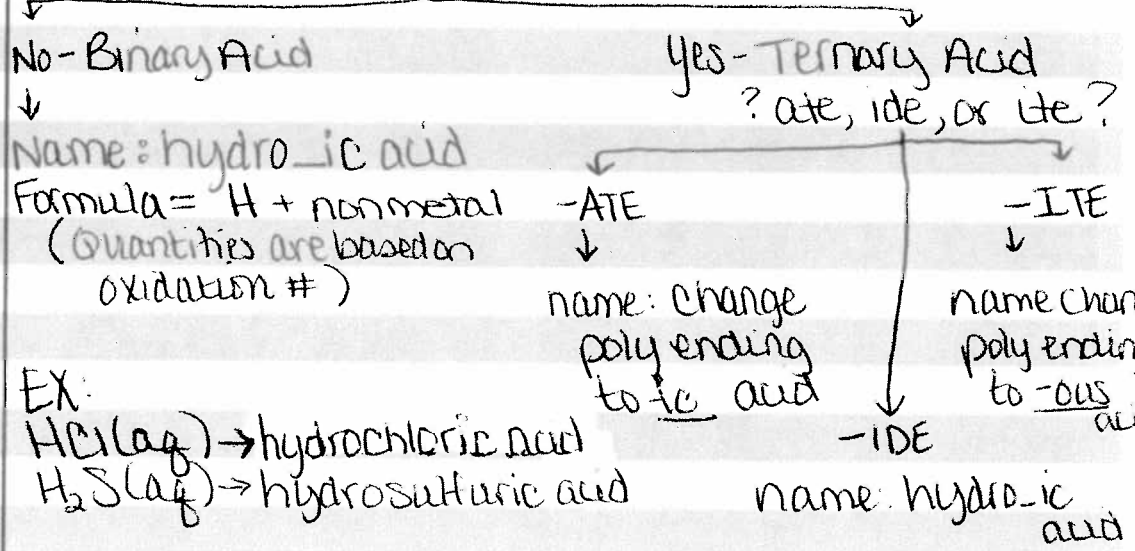 No-Binary Acid
Name: hydro_ic acid
Formula = H + nonmetal
(Quantities are based on
oxidation #)
EX:
HCl(aq) → hydrochloric acid
H₂S(aq) → hydrosulfuric acid
Yes- Ternary Acid
? ate, ide, or ite?
-ATE
name: change
poly ending
to ic acid
-IDE
name: hydro_ic
acid
-ITE
name chan
poly endin
to -ous
ac